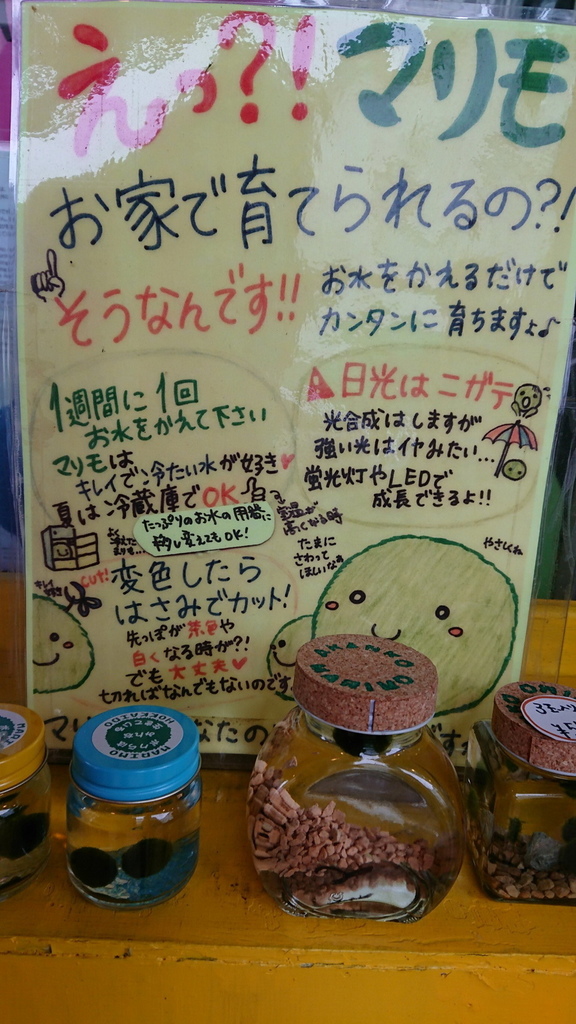 えっ?! マリモ
お家で育てられるの?!
そうなんです!!
お水をかえるだけで
カンタンに育ちますょ♪
1週間に1回
お水をかえて下さい
マリモは
キレイで冷たい水が好き♥
夏は冷蔵庫でOK
たっぷりのお水の用器に
移し変えてもOK!
室温が
高くなる時
▲日光はニガテ
光合成はしますが
強い光はイヤみたい...
蛍光灯やLEDで
成長できるよ!!
たまに
さわって
ほしいなぁ
やさしくね
cut!
変色したら
はさみでカット!
先っぽが茶色や
白くなる時が?!
でも大丈夫♥
切ればなんでもないのです
マリ
なたの
す
MARIMO
HOKKAIDO
MARIMO